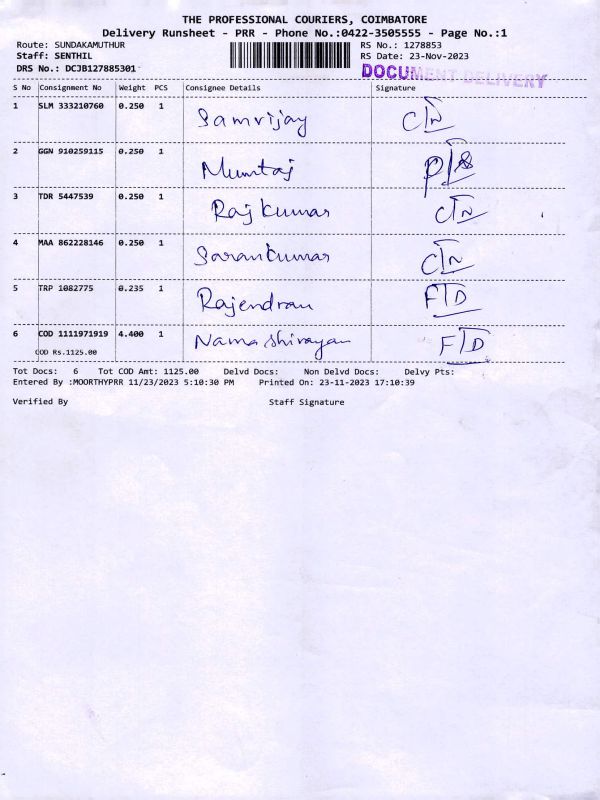 THE PROFESSIONAL COURIERS, COIMBATORE
Delivery Runsheet - PRR - Phone No.:0422-3505555 - Page No.:1
Route: SUNDAKAMUTHUR RS No.: 1278853
Staff: SENTHIL RS Date: 23-Nov-2023
DRS No.: DCJB127885301 DOCUMENT DELIVERY
S No Consignment No Weight PCS Consignee Details Signature
1 SLM 333210760 0.250 1 Samvijay
2 GGN 910259115 0.250 1 Mumtaj
3 TDR 5447539 0.250 1 Rajkumar
4 MAA 862228146 0.250 1 Sarankumar
5 TRP 1082775 0.235 1 Rajendran FTD
6 COD 1111971919 4.400 1 Namashivayan FTD
COD Rs.1125.00
Tot Docs: 6 Tot COD Amt: 1125.00 Delvd Docs: Non Delvd Docs: Delvy Pts:
Entered By :MOORTHYPRR 11/23/2023 5:10:30 PM Printed On: 23-11-2023 17:10:39
Verified By Staff Signature